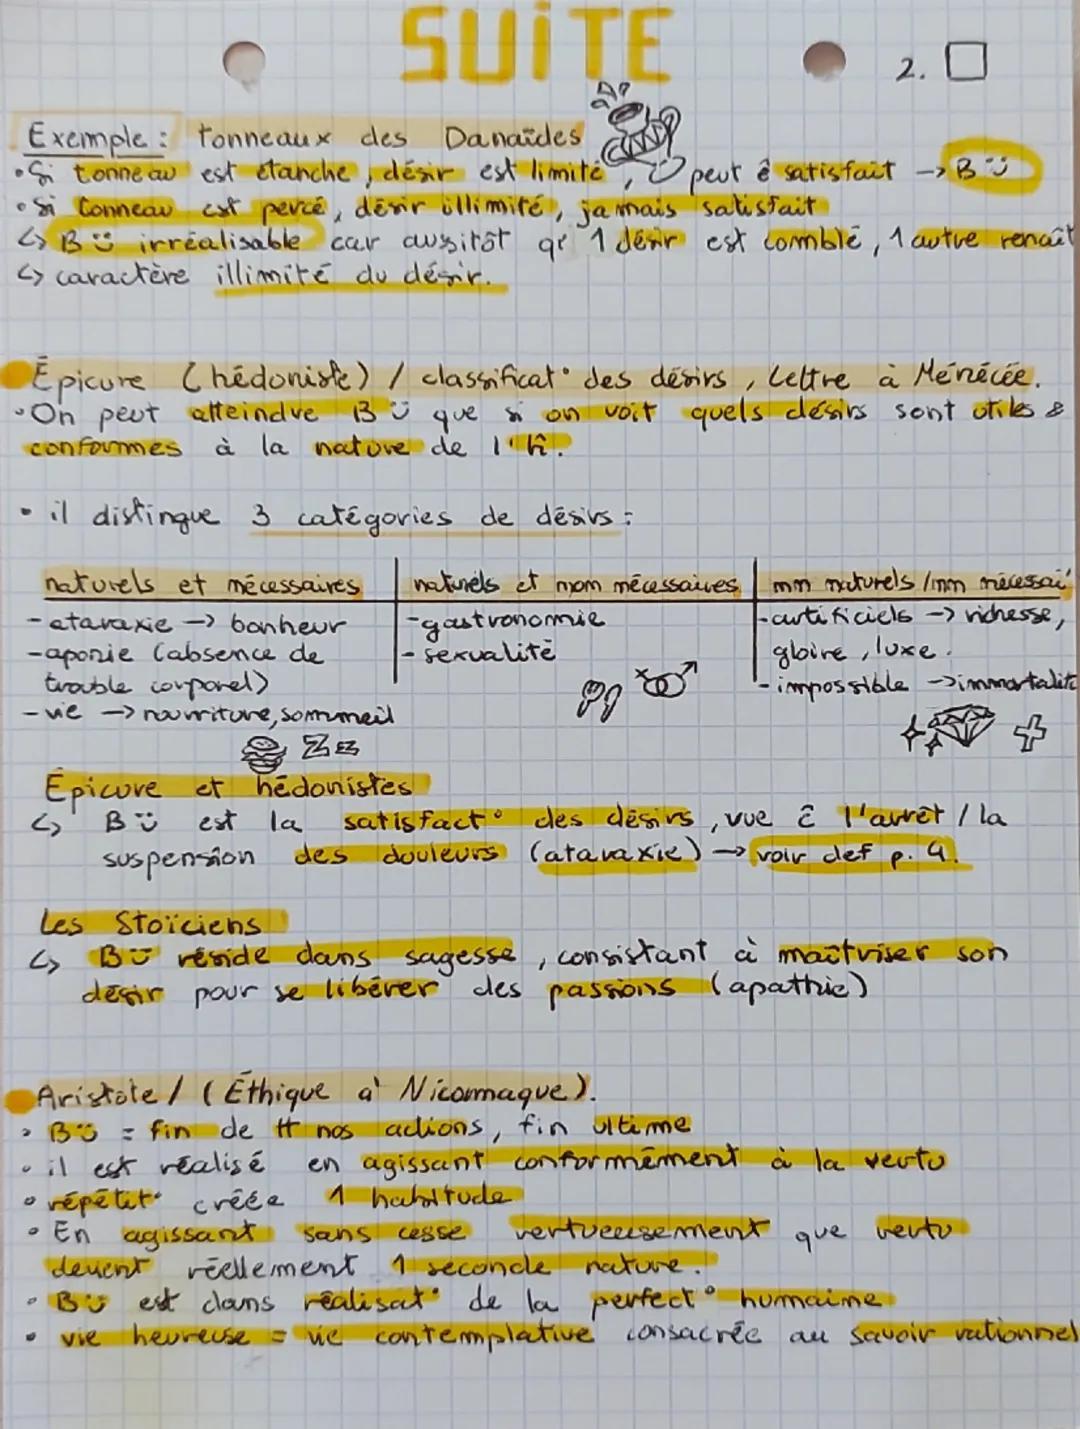 SUiTE
2.
Exemple : tonneaux des Danaïdes
• Si tonneau est étanche, désir est limité, peut ê satisfait → B
• Si tonneau est percé, désir illimité, jamais satisfait
↳ B irréalisable car aussitôt qe 1 désir est comblé, 1 autre renaît
↳ caractère illimité du désir.
Épicure (hédoniste) / classificat° des désirs, Lettre à Ménécée.
• On peut atteindre B que si on voit quels désirs sont utiles &
conformes à la nature de l'ĥ.
• il distingue 3 catégories de désirs :
naturels et nécessaires | naturels et non nécessaires | nn naturels / nn nécessai
- ataraxie → bonheur | - gastronomie | - artificiels → richesse,
- aponie (absence de | - sexualité | gloire, luxe.
trouble corporel) | - impossible → immortalité
- vie → nourriture, sommeil
Zzz
Épicure et hédonistes
↳ B est la satisfact° des désirs, vue ĉ l'arrêt / la
suspension des douleurs (ataraxie) → voir def p. 4.
Les Stoïciens
↳ B réside dans sagesse, consistant à maîtriser son
désir pour se libérer des passions (apathie)
Aristote / (Éthique à Nicomaque).
• B = fin de tt nos actions, fin ultime
• il est réalisé en agissant conformément à la vertu
• répétit° créée 1 habitude
• En agissant sans cesse vertueusement que vertu
devient réellement 1 seconde nature.
• B est dans réalisat° de la perfect° humaine
• vie heureuse = vie contemplative consacrée au savoir rationnel